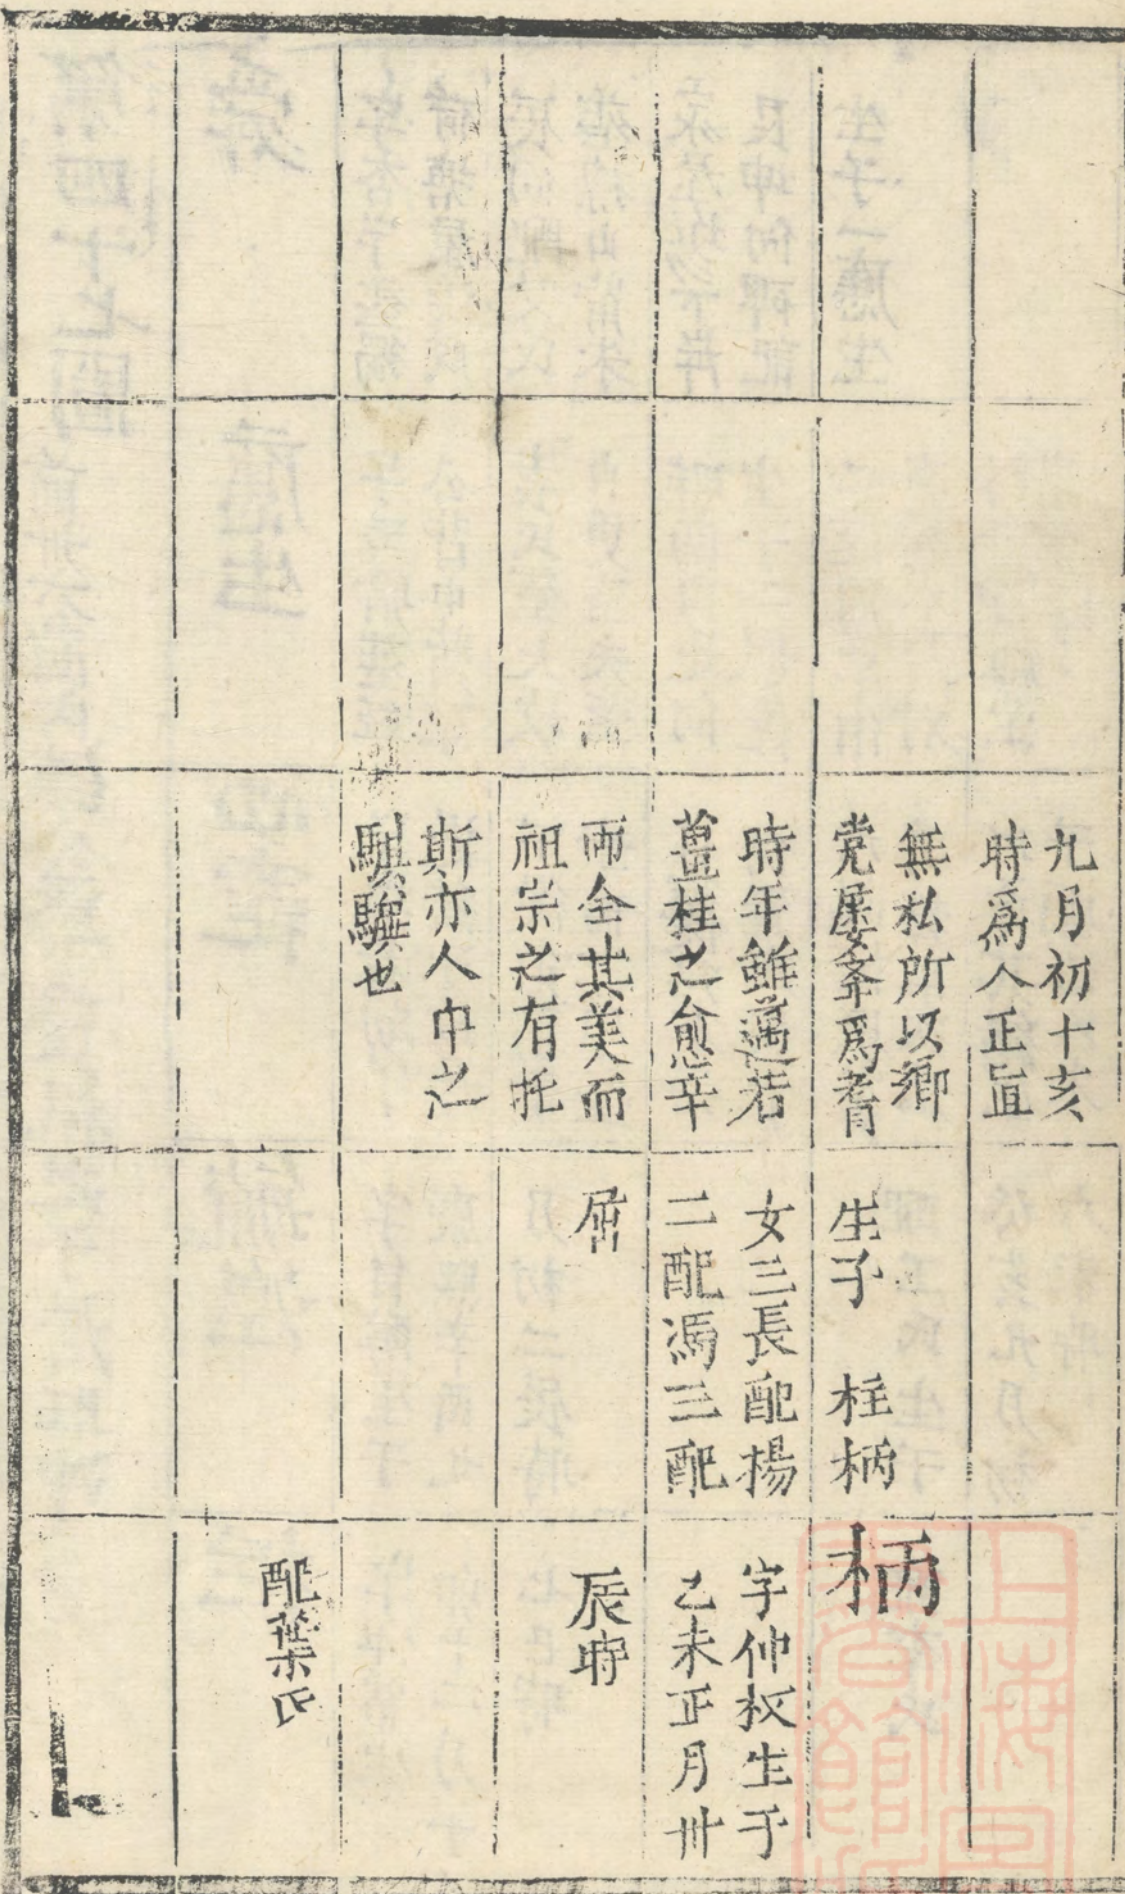 九月初十亥
時爲人正直
無私所以鄉
党屡举爲耆
時年雖邁若
薑桂之愈辛
両全其美而
祖宗之有托
斯亦人中之
騏驥也
生子　柱柄
女三長配楊
二配馮三配
屠
柄
字仲权生于
乙未正月卅
辰時
配葉氏